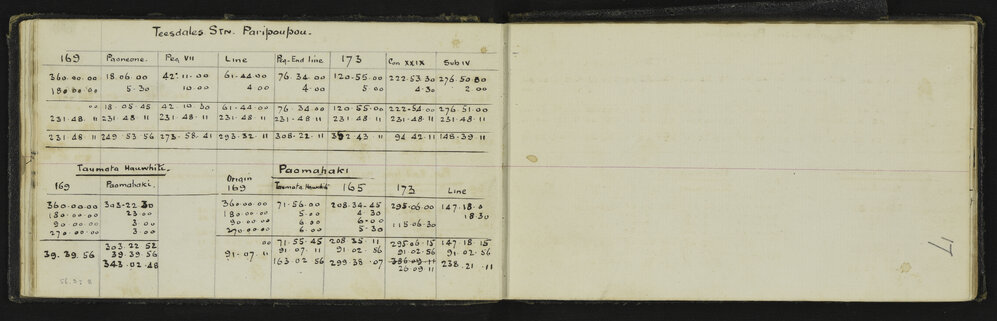 Teesdales Stn. Paripoupou.
169 Paoneone. Peg VII Line Peg-End line 173 Con XXIX Sub IV
360.00.00 18.06.00 42.11.00 61.44.00 76.34.00 120.55.00 222.53.30 276.50.00
180.00.00 5.30 10.00 4.00 4.00 5.00 4.30 2.00
00 18.05.45 42.10.30 61.44.00 76.34.00 120.55.00 222.54.00 276.51.00
231.48.11 231.48.11 231.48.11 231.48.11 231.48.11 231.48.11 231.48.11 231.48.11
231.48.11 249.53.56 273.58.41 293.32.11 308.22.11 352.43.11 94.42.11 148.39.11
Taumata Hauwhiti.
169 Paomahaki.
360.00.00 303.22.30
180.00.00 23.00
90.00.00 3.00
270.00.00 3.00
303.22.52
39.39.56 39.39.56
343.02.48
Paomahaki
Origin
169 Taumata Hauwhiti 165 173 Line
360.00.00 71.56.00 208.34.45 295.06.00 147.18.0
180.00.00 5.00 4.30 18.30
90.00.00 6.00 6.00 115.06.30
270.00.00 6.00 5.30
00 71.55.45 208.35.11 295.06.15 147.18.15
91.07.11 91.07.11 91.02.56 91.02.56 91.02.56
163.02.56 299.38.07 386.09.11 238.21.11
26.09.11
17